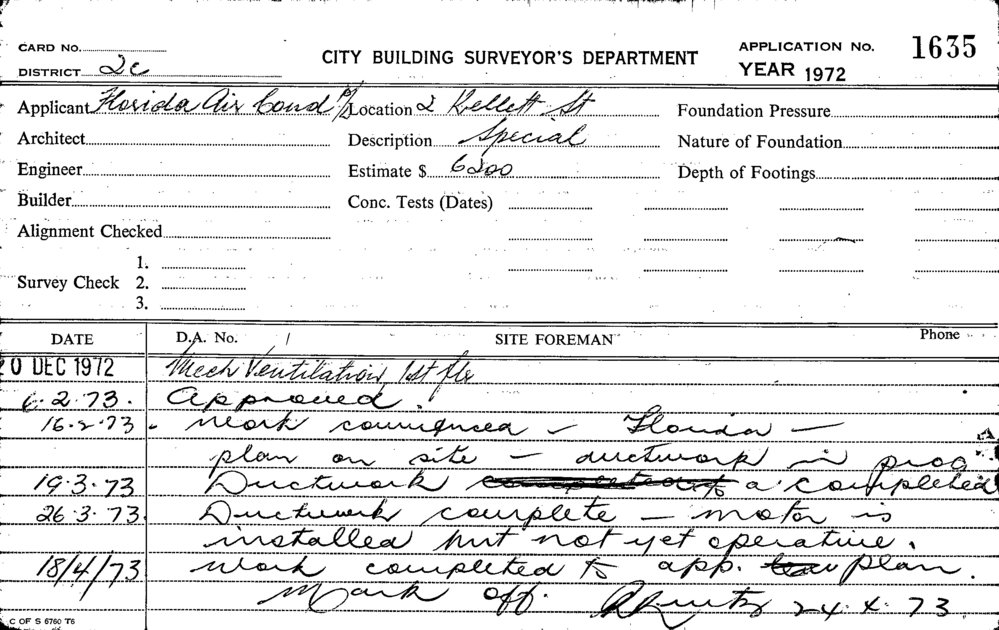 CARD NO.
DISTRICT 2c
CITY BUILDING SURVEYOR'S DEPARTMENT
APPLICATION No. 1635
YEAR 1972
Applicant Florida Air Cond P/L Location 2 Kellett St Foundation Pressure
Architect Description Special Nature of Foundation
Engineer Estimate $ 6200 Depth of Footings
Builder Conc. Tests (Dates)
Alignment Checked
1.
Survey Check 2.
3.
DATE D.A. No. / SITE FOREMAN Phone
0 DEC 1972 Mech Ventilation, 1st flr
6.2.73. Approved.
16.2.73. Work commenced - Florida -
plan on site - ductwork in prog
19.3.73 Ductwork a. completed
26.3.73. Ductwork complete - motor is
installed but not yet operative.
18/4/73 Work completed to app. plan.
Mark off. 24.4.73
C OF S 6760 T6